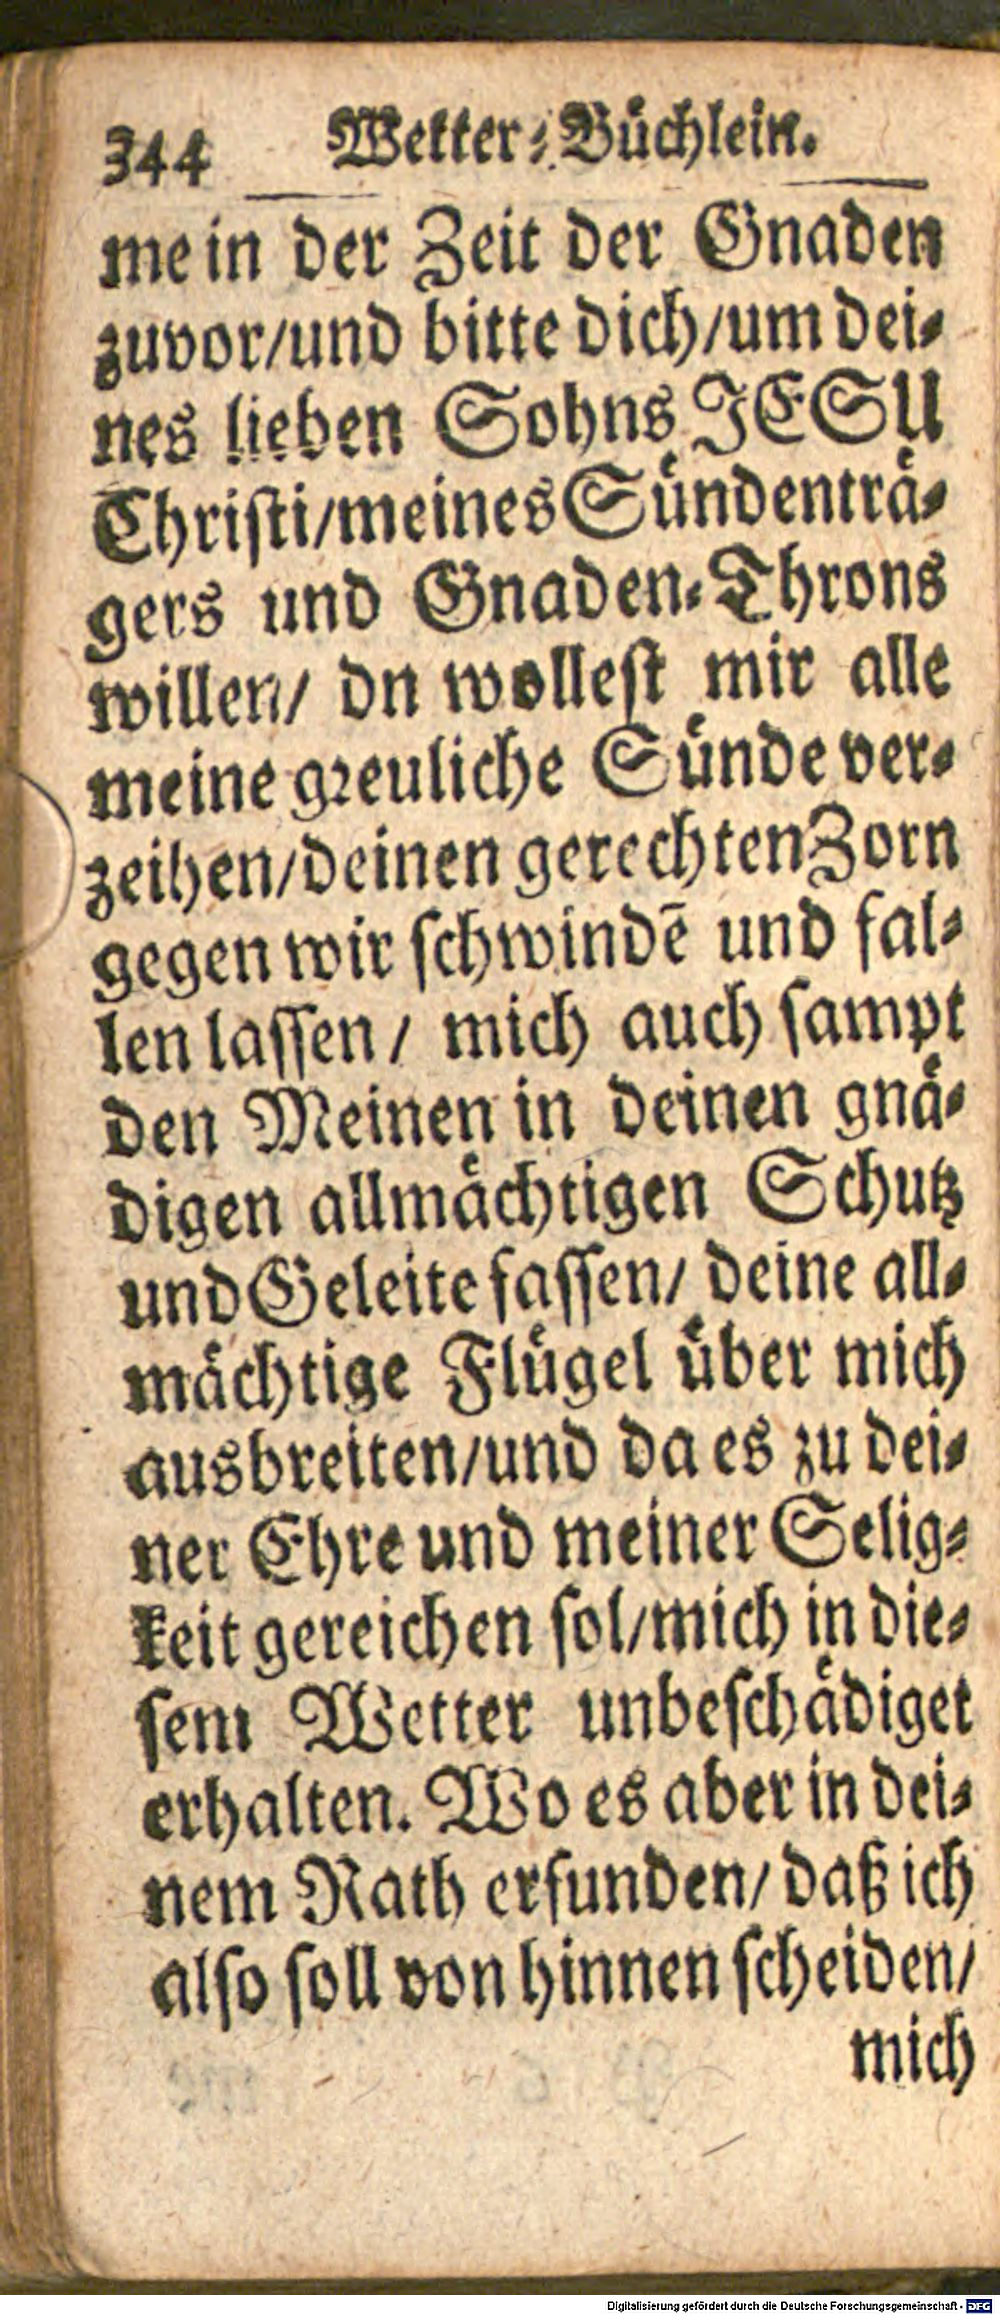 344 Wetter-Büchlein.
me in der Zeit der Gnaden
zuvor/und bitte dich/um dei-
nes lieben Sohns JESU
Christi/meines Sündenträ-
gers und Gnaden-Throns
willen/ dn wollest mir alle
meine greuliche Sünde ver-
zeihen/deinen gerechten Zorn
gegen wir schwindē und fal-
len lassen/ mich auch sampt
den Meinen in deinen gnä-
digen allmächtigen Schutz
und Geleite fassen/ deine all-
mächtige Flügel über mich
ausbreiten/und da es zu dei-
ner Ehre und meiner Selig-
keit gereichen sol/mich in die-
sem Wetter unbeschädiget
erhalten. Wo es aber in dei-
nem Rath erfunden/ daß ich
also soll von hinnen scheiden/
mich
Digitalisierung gefördert durch die Deutsche Forschungsgemeinschaft - DFG